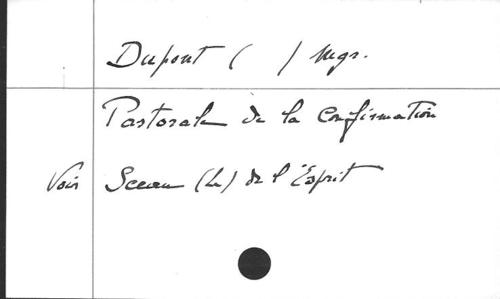 Dupont ( ) Mgr.
Pastorale de la Confirmation
Voir Sceau (Le) de l'Esprit